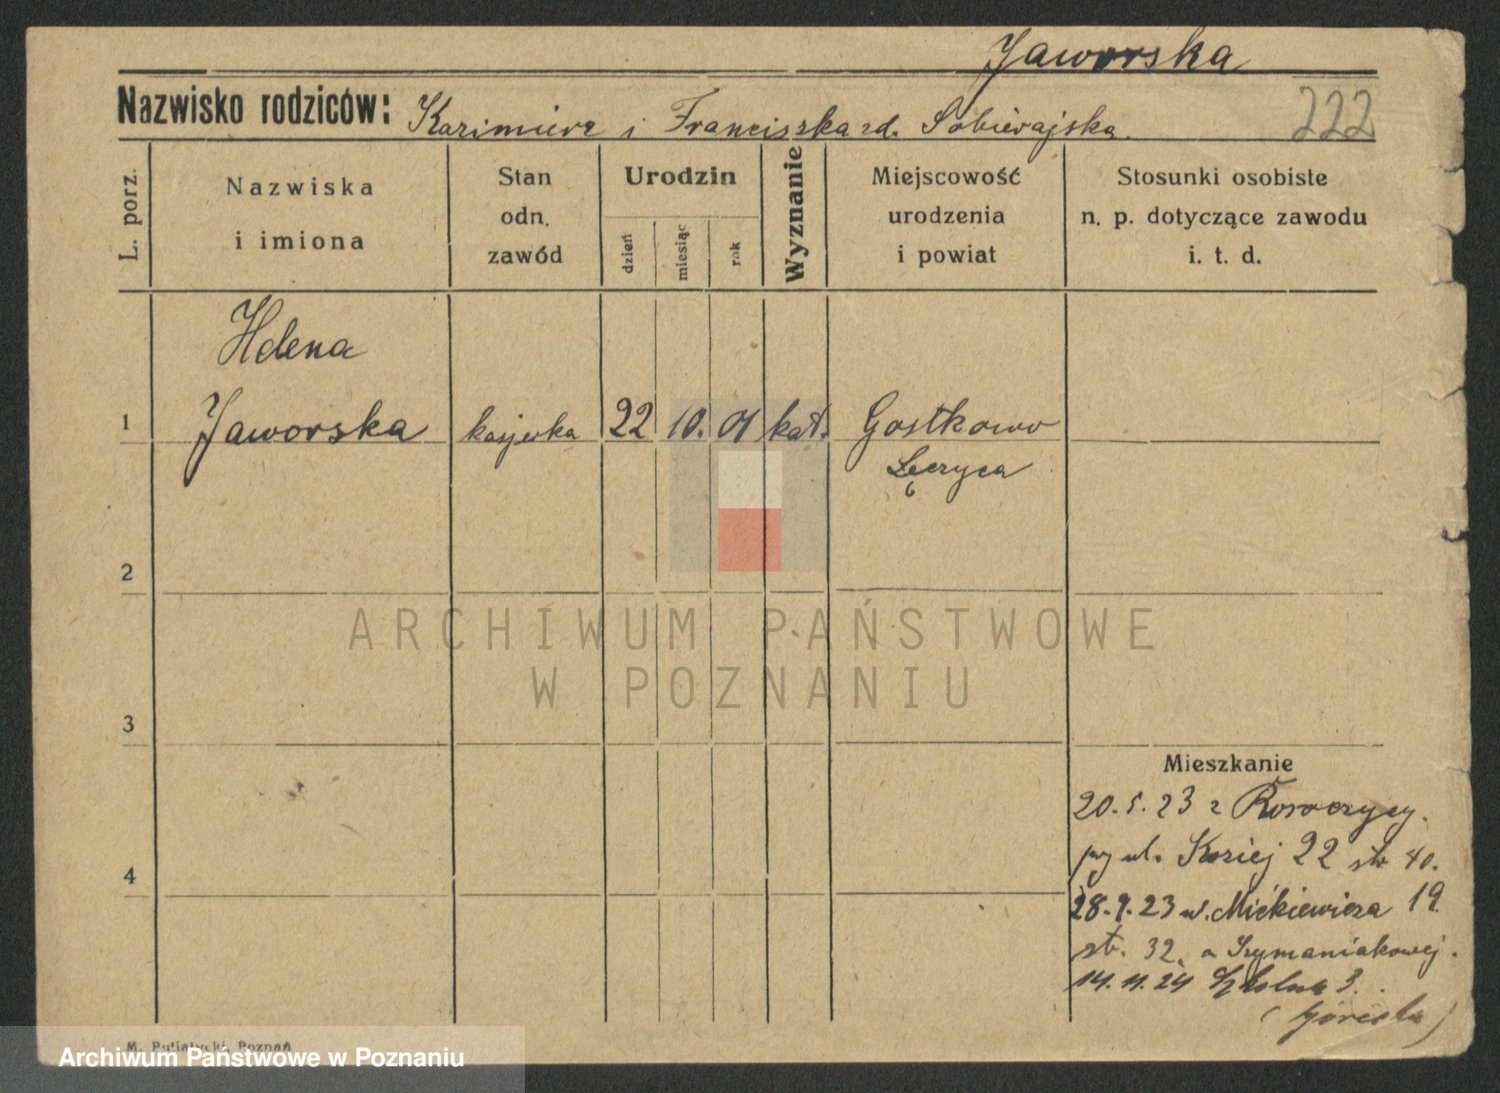 Jaworska
Nazwisko rodziców: Kazimierz i Franciszka zd. Sobierajska. 222
L. porz.
Nazwiska
i imiona
Stan
odn.
zawód
Urodzin
dzień
miesiąc
rok
Wyznanie
Miejscowość
urodzenia
i powiat
Stosunki osobiste
n. p. dotyczące zawodu
i. t. d.
Helena
1 Jaworska kasjerka 22 10. 01 kat. Gostkowo
Łęczyca
2
ARCHIWUM PAŃSTWOWE
W POZNANIU
3
Mieszkanie
20.5.23 z
ul. Koziej 22 st 40.
4
28. 23 ul. Mickiewicza 19.
st. 32. a Szymaniakowej.
14.11.24 Szkolna 3.
(Górecka)
M. Poznań
Archiwum Państwowe w Poznaniu